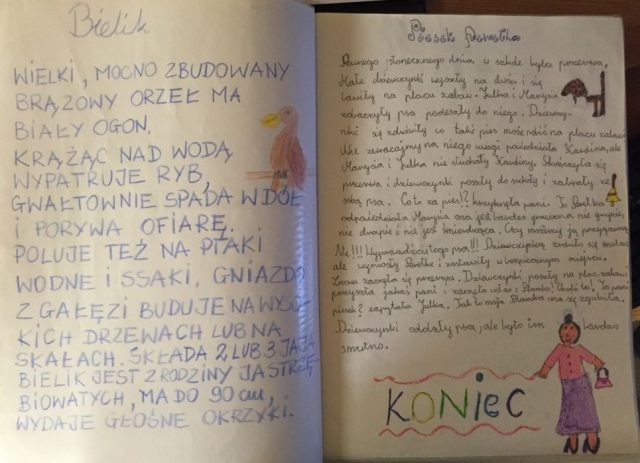 Bielik
WIELKI, MOCNO ZBUDOWANY
BRĄZOWY ORZEŁ MA
BIAŁY OGON.
KRĄŻĄC NAD WODĄ
WYPATRUJE RYB,
GWAŁTOWNIE SPADA W DÓŁ
I PORYWA OFIARĘ.
POLUJE TEŻ NA PTAKI
WODNE I SSAKI, GNIAZDO
Z GAŁĘZI BUDUJE NA WYSO
KICH DRZEWACH LUB NA
SKAŁACH. SKŁADA 2 LUB 3 JAJA
BIELIK JEST Z RODZINY JASTRZĘ
BIOWATYCH, MA DO 90 cm,
WYDAJE GŁOŚNE OKRZYKI.
Piesek Perełka
Pewnego słonecznego dnia w szkole była przerwa.
Małe dziewczynki wyszły na dwór i się
bawiły na placu zabaw. Julka i Marysia
zobaczyły psa podeszły do niego. Dziewczy-
nki się zdziwiły co taki pies może robić na placu zabaw
Nie zwracajmy na niego uwagi powiedziała Karolina, ale
Marysia i Julka nie słuchały Karoliny. Skończyła się
przerwa i dziewczynki poszły do szkoły i zabrały ze
sobą psa. Co to za pies!? krzyknęła pani. To Perełka
odpowiedziała Marysia ona jest bardzo grzeczna nie gryzie,
nie drapie i nie jest śmierdząca. Czy możemy ją przygarnąć
Nie!!! Wyprowadźcie tego psa!!! Dziewczynką zrobiło się smutno
ale wyniosły Perełkę i zostawiły w bezpiecznym miejscu.
Znowu zaczęła się przerwa. Dziewczynki poszły na plac zabaw
przyszła jakaś pani i zaczęła wołać Słonko! Chodź tu! To pani
piesek? zapytała Julka. Tak to moja Słonko ona się zgubiła.
Dziewczynki oddały psa, ale było im bardzo
smutno.
KONIEC